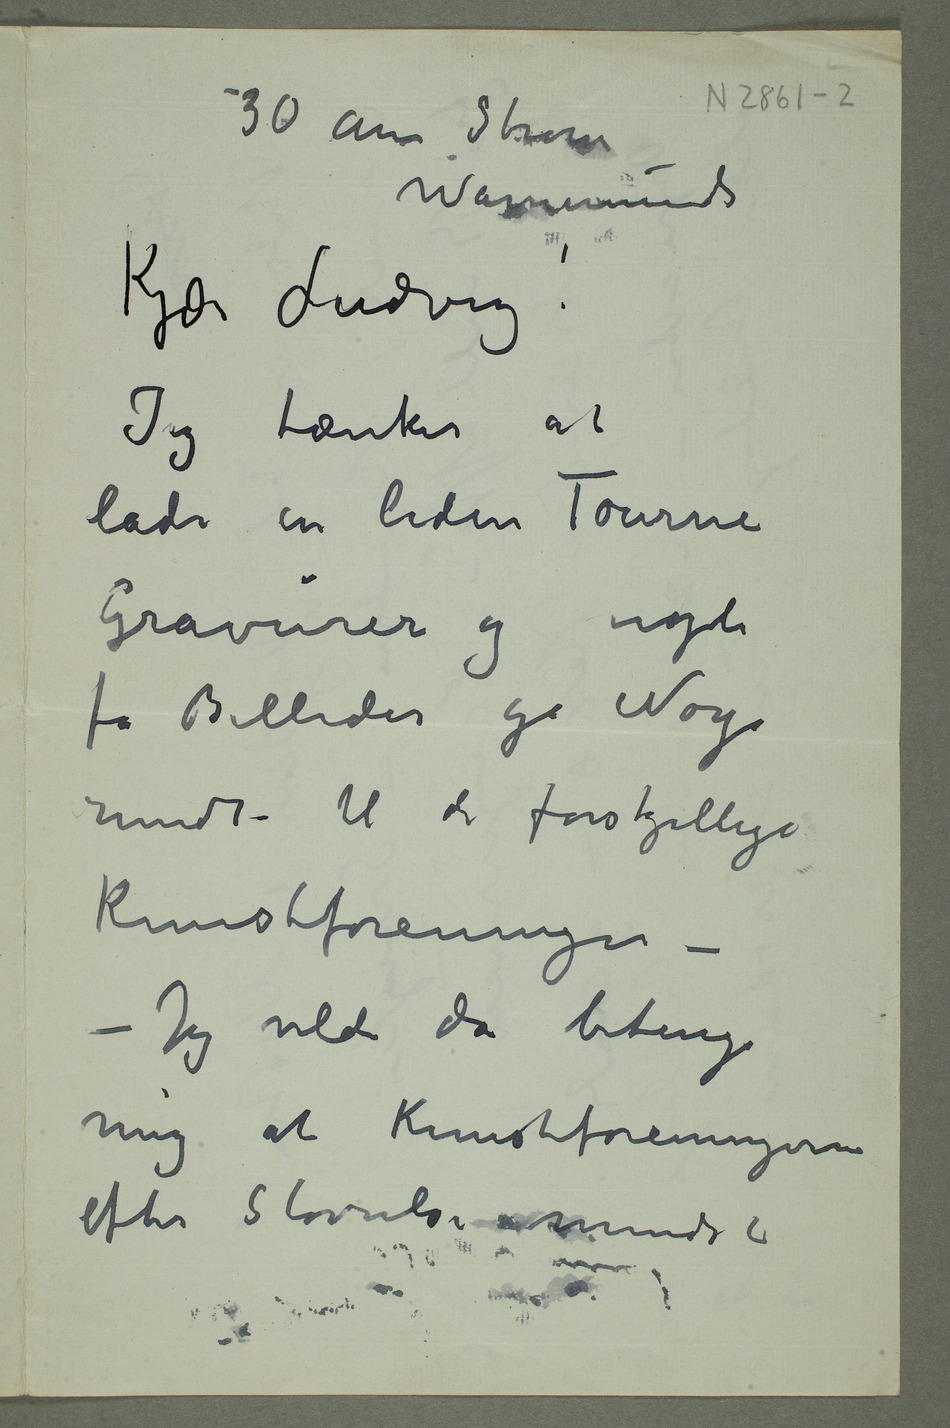 N 2861-2
30 am Strom
Warnemünde
Kjære Ludvig!
Jeg tænker at
lade en liden Tourne
Gravürer og nogle
få Billeder gå Norge
rundt – til de forskjellige
Kunstforeninger –
– Jeg vilde da betinge
mig at Kunstforeningerne
efter Størrelse mindst